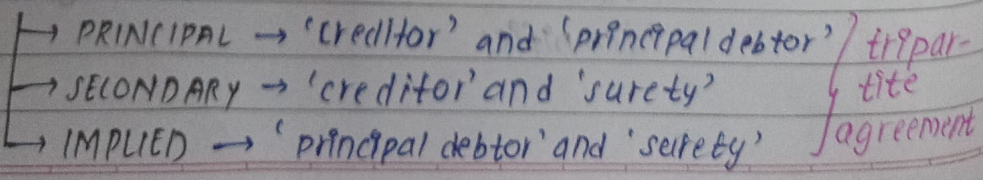 → PRINCIPAL → 'creditor' and 'principal debtor' } tripar-
→ SECONDARY → 'creditor' and 'surety' tite
→ IMPLIED → 'principal debtor' and 'surety' agreement